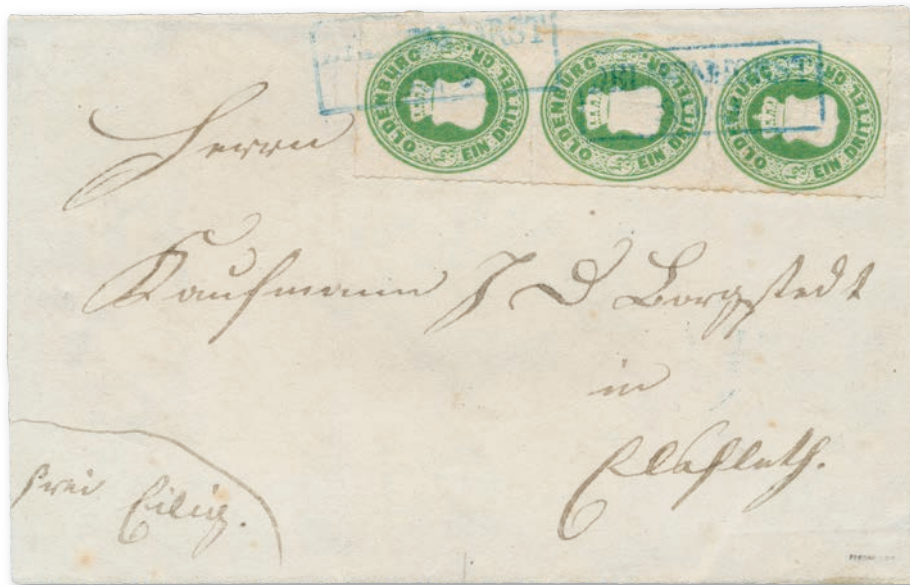 OLDENBURG EIN DRITTEL GR.
OLDENBURG EIN DRITTEL GR.
OLDENBURG EIN DRITTEL GR.
Herrn
Kaufmann J D Borgstedt
in
Elsfleth.
frei Eilig.